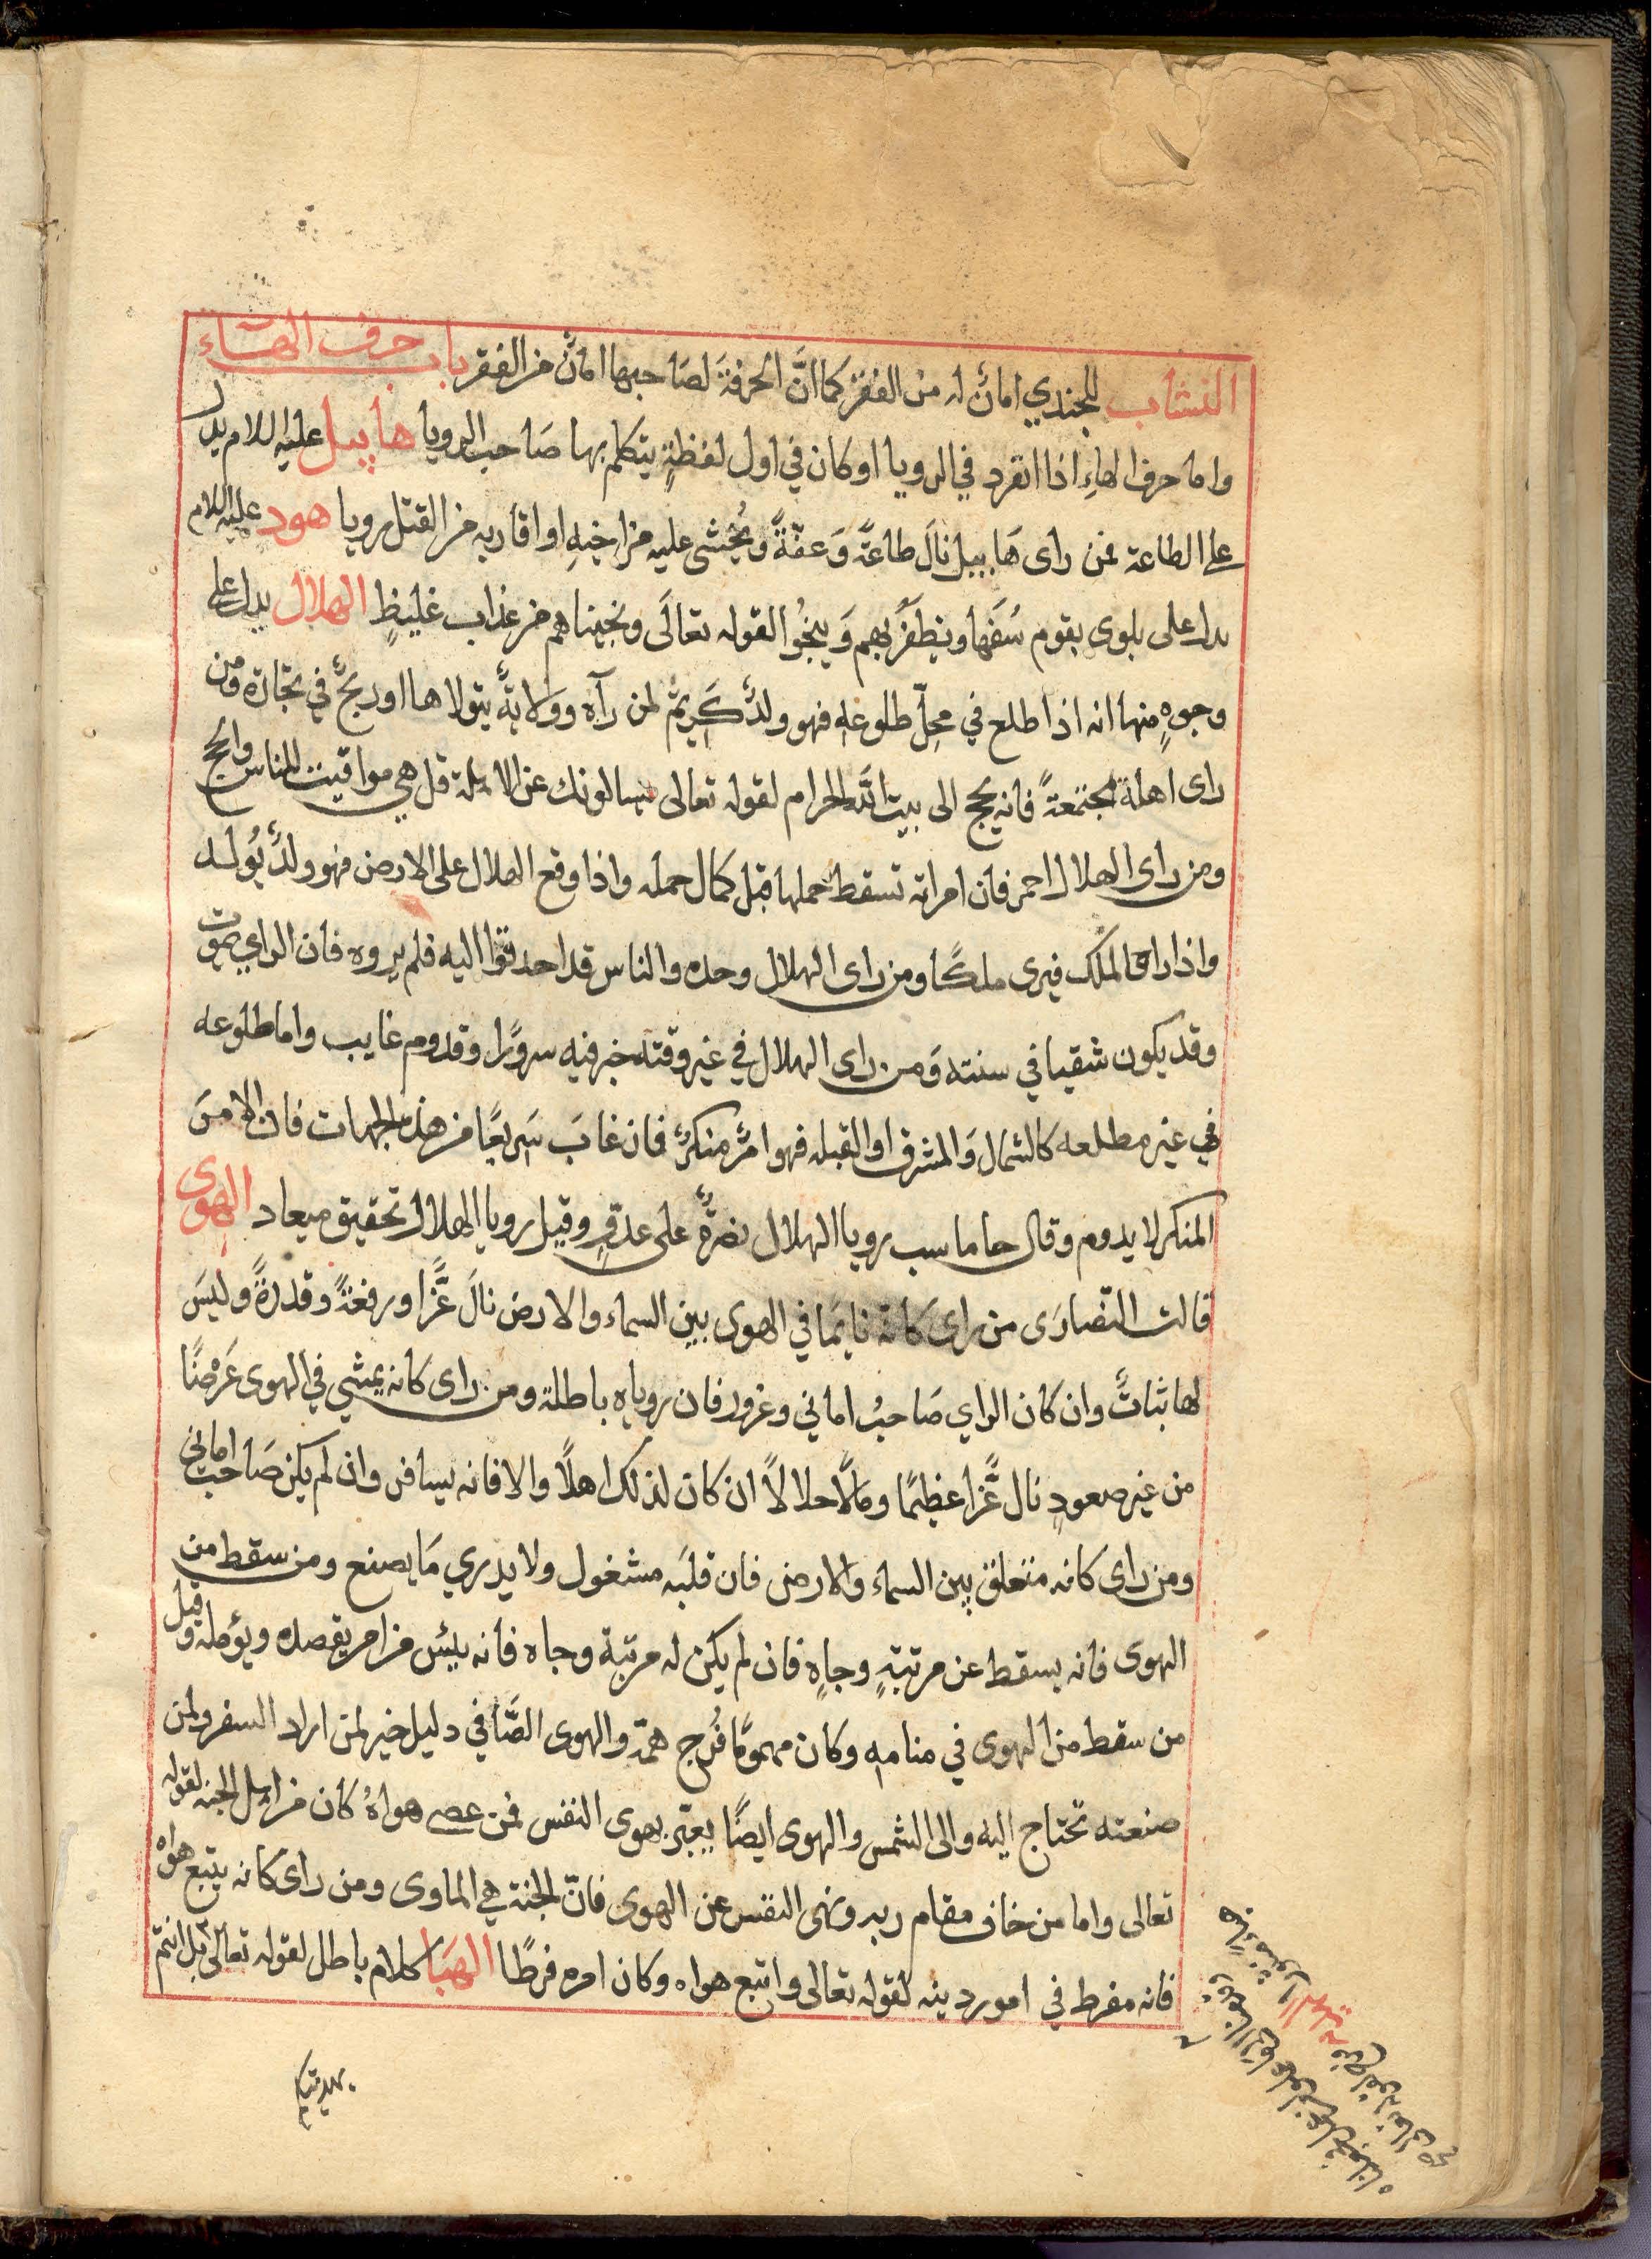 النشاب للجندي امانٌ له من الفقر كما انَّ الحرفةَ لصَاحبها امانٌ من الفقر باب حرف الهاء
واما حرف الهاءِ اذا انفرد في الرويا او كان في اول لفظةٍ يتكلم بها صَاحب الرويا هابيل عليه السلام يدل
على الطاعة فمن راى هَابيل نالَ طاعَةً وَعفّةً ويُخشى عليه من اخيهِ او اقاربه من القتل رويا هود عليه السلام
يدل على بلوى بقوم سُفَهَا ويظفَرُ بهم وَينجُوا لقوله تعالَى ونجيناهم من عذاب غليظٍ الهلال يدل على
وجوهٍ منها انه اذا طلع في محِلّ طلوعهِ فهو ولدٌ كَرِيمٌ لمن رآه وولايةٌ يتولاها او ربحٌ في تجارة ومن
راى اهلة مجتمعةً فانه يحج الى بيت الله الحرام لقوله تعالى يسالونك عن الاهلة قل هي مواقيت للناس والحج
ومن راى الهلال احمر فان امراته تسقط حملها قبل كمال حمله واذا وقع الهلال على الارض فهو ولدٌ يُولد
واذا راه الملك فيرى ملكًا ومن راى الهلال وحده والناس قد احدقوا اليه فلم يروه فان الراي يموت
وقد يكون شقيا في سنته وَمن راى الهلال في غير وقته خبر فيه سرورًا وقدوم غايب واما طلوعه
في غير مطلعه كالشمال وَالمشرق او القبله فهو امرٌ منكرٌ فان غابَ سَريعًا من هذه الجهات فان الامرَ
المنكر لا يدوم وقال جاماسب رويا الهلال نصرةٌ على عدوٍّ وقيل رويا الهلال تحقيق ميعاد الهوى
قالت النّصارَى من راى كانه نايمًا في الهوى بين السماء والارض نالَ عزًّا ورفعةً وقدرةً وليسَ
لها ثباتٌ وان كان الراي صَاحبُ اماني وغرور فان روياه باطلة ومن راى كانه يمشي في الهوى عَرْضًا
من غير صعودٍ نال عزًّا عظيمًا ومالًا حلالًا ان كان لذلك اهلًا والا فانه يسافر وان لم يكن صَاحب اماني
ومن راى كانه متعلق بين السماء والارض فان قلبَه مشغول ولا يدري مَا يصنع ومن سقط من
الهوى فانه يسقط عن مرتبةٍ وجاهٍ فان لم يكن له مرتبة وجاه فانه ييئس من امر يقصده ويؤمله وقيل
من سقط من الهوى في منامهِ وكان مهمومًا فُرج همّه والهوى الصَّافي دليل خير لمن اراد السفر ولمن
صنعته تحتاج اليه والى الشمس والهوى ايضًا يعبّر بهوى النفس فمن عصى هواهُ كان من اهل الجنه لقوله
تعالى واما من خاف مقام ربه ونهى النفس عن الهوى فانّ الجنة هي الماوى ومن راى كانه يتبع هواه
فانه مفرط في امور دينه لقوله تعالى واتبع هواه وكان امره فرطًا الهبَا كلام باطل لقوله تعالى بل انتم
بهديتكم